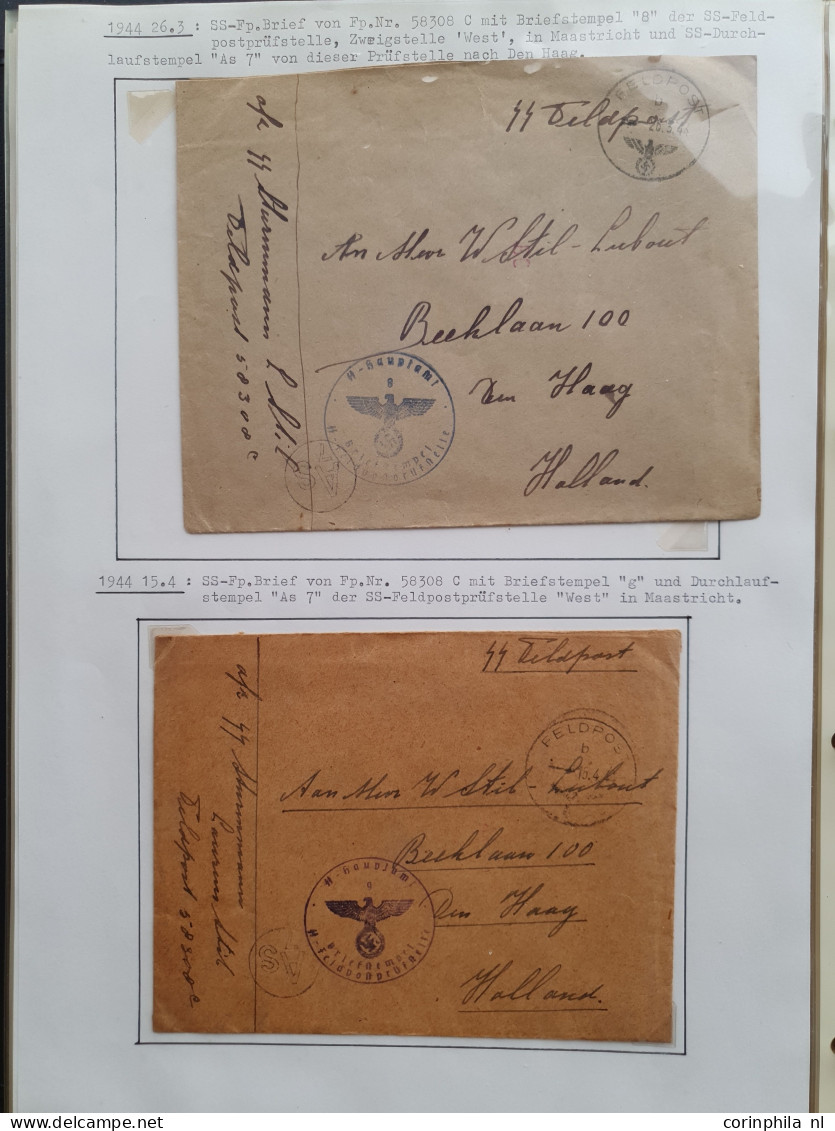 1944 26.3 : SS-Fp.Brief von Fp.Nr. 58308 C mit Briefstempel "8" der SS-Feld-
postprüfstelle, Zweigstelle 'West', in Maastricht und SS-Durch-
laufstempel "As 7" von dieser Prüfstelle nach Den Haag.
SS Feldpost
FELDPOST
b
26.3.44
An Mevr W Stil-Lubout
Beeklaan 100
Den Haag
Holland.
a/z SS Sturmmann L Stil
Feldpost 58308 C
SS-Hauptamt
g
Briefstempel
SS-Feldpostprüfstelle
1944 15.4 : SS-Fp.Brief von Fp.Nr. 58308 C mit Briefstempel "g" und Durchlauf-
stempel "As 7" der SS-Feldpostprüfstelle "West" in Maastricht.
SS Feldpost
FELDPOS
b
15.4
Aan Mevr W Stil-Lubout
Beeklaan 100
Den Haag
Holland.
a/z SS Sturmmann
Laurens Stil
Feldpost 58308 C
SS-Hauptamt
g
Briefstempel
SS-Feldpostprüfstelle
www.corinphila.nl